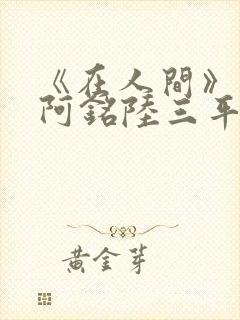 《在人間》
阿銘陸三年
黃金芽